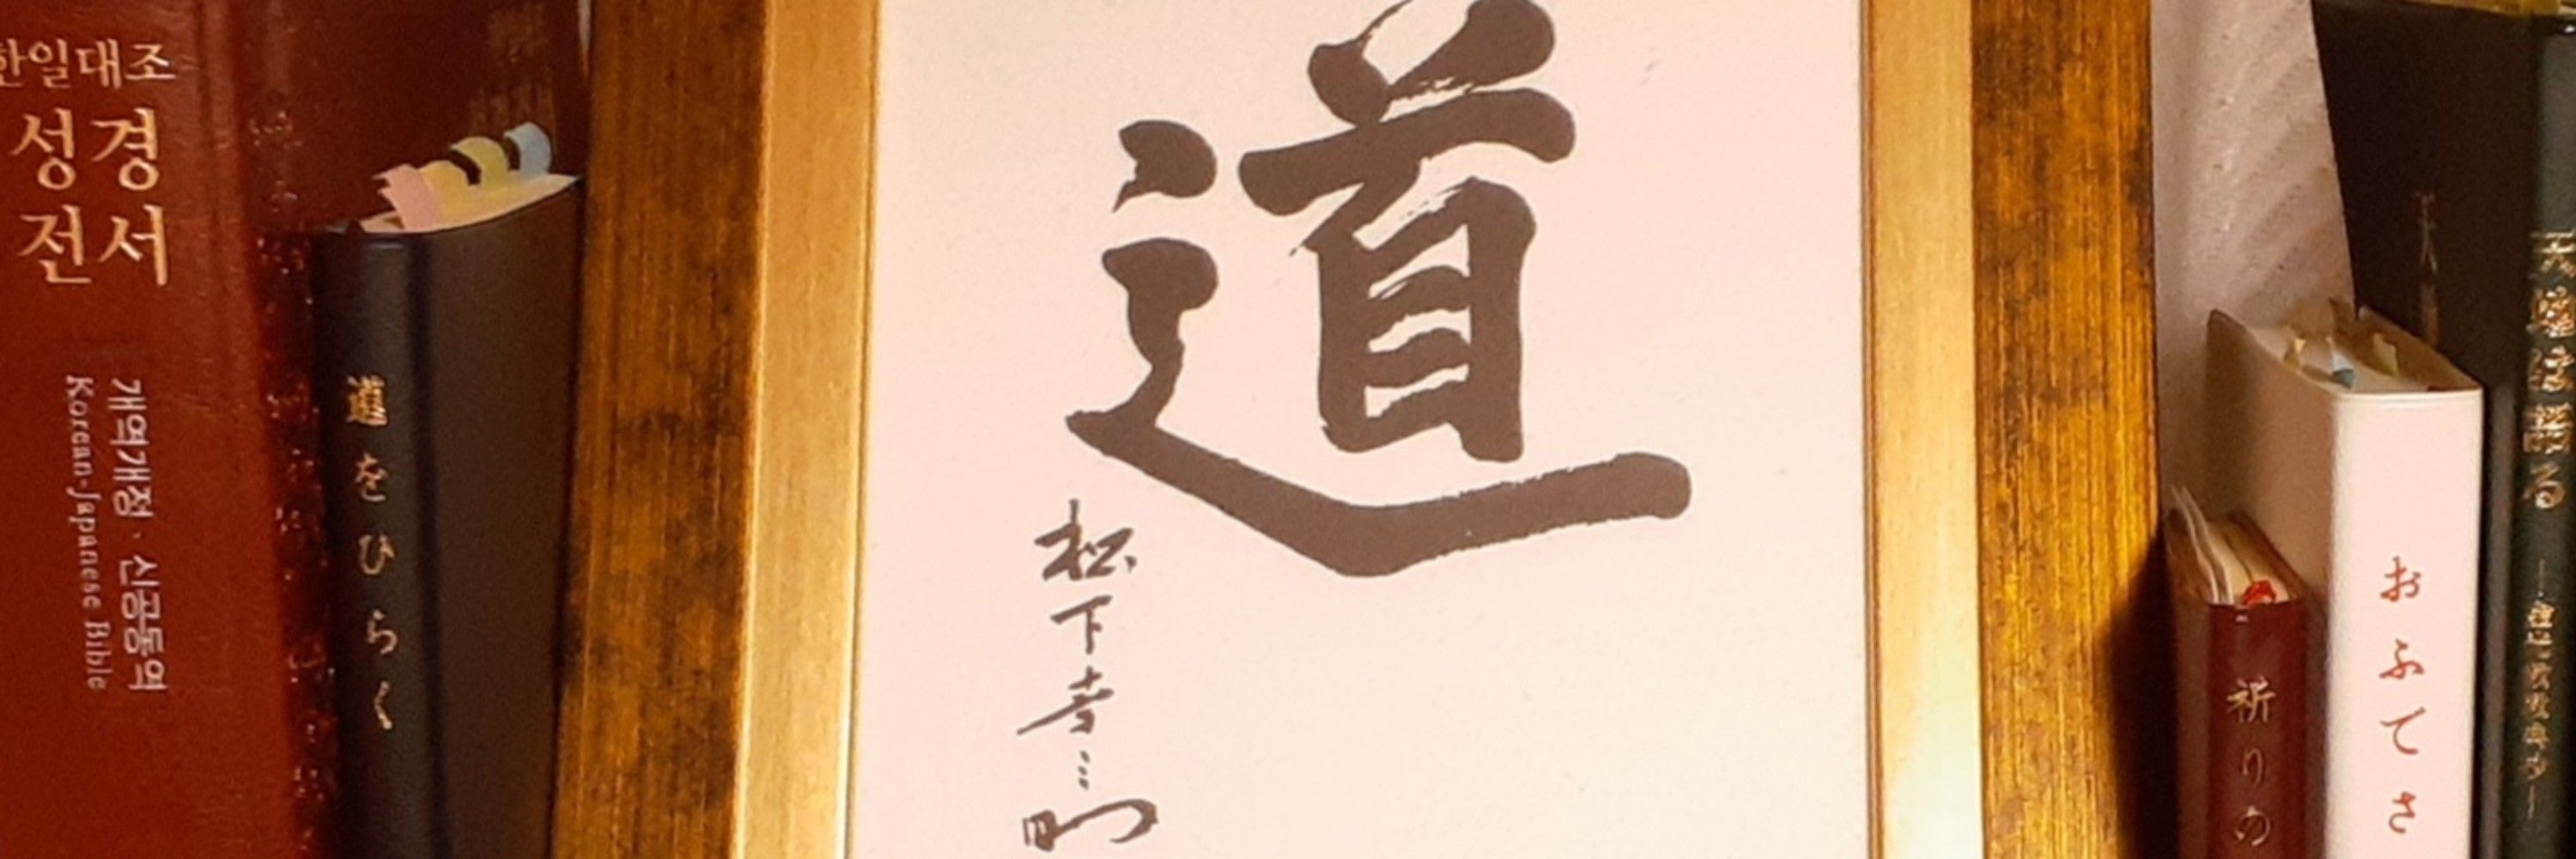 한일대조
성경
전서
개역개정 · 신공동역
Korean-Japanese Bible
道をひらく
道
松下幸之助
祈りの
おふでさ